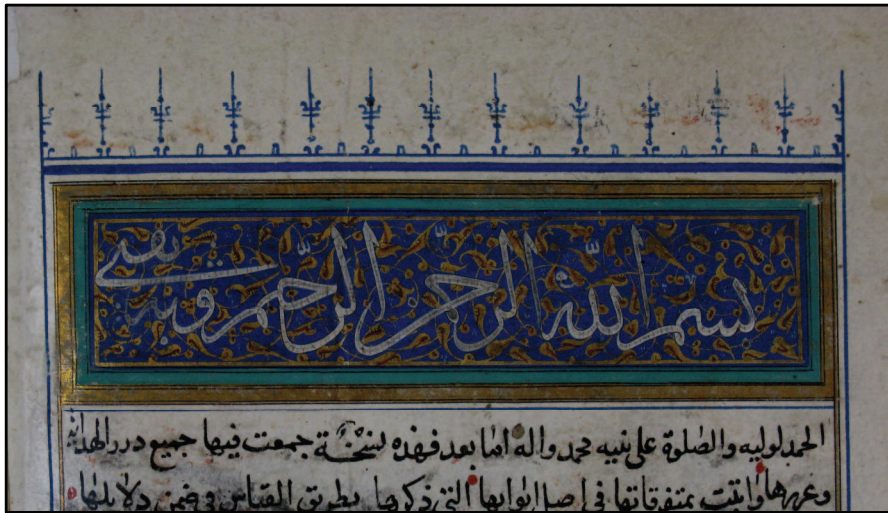 بسم الله الرحمن الرحيم وبه ثقتي
الحمد لوليه والصلوة على نبيه محمد واله اما بعد فهذه نسخة جمعت فيها جميع درر الهداية
وغررها واتيت بمتفرقاتها في اصل ابوابها التي ذكرها بطريق القياس في ضمن دلايلها